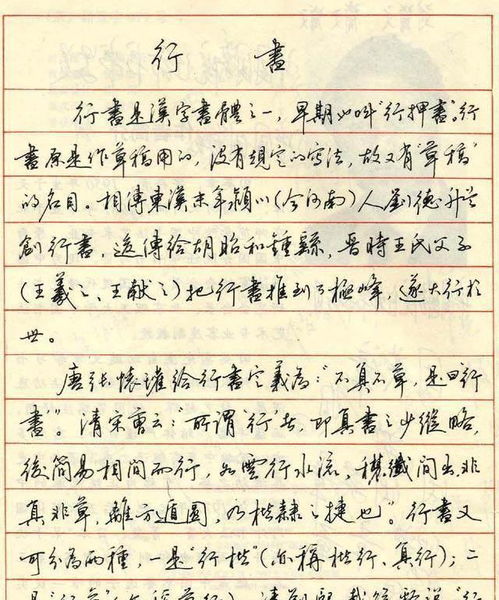 行書
行書是漢字書體之一，早期也叫“行押書”。行
書原是作草稿用的，没有規定的寫法，故又有“草稿”
的名目。相傳東漢末年潁川（今河南）人劉德升首
創行書，遂傳給胡昭和鍾繇，晋時王氏父子
（王羲之、王献之）把行書推到了極峰，遂大行於
世。
唐張懷瓘給行書定義為：“不真不草，是曰行
書”。清宋曹云：“所謂‘行’者，即真書之少縱略，
後簡易相間而行，如雲行水流，穠纖間出，非
真非草，離方遁圓，乃楷隸之捷也”。行書又
可分為兩種，一是“行楷”（亦稱楷行、真行）；二